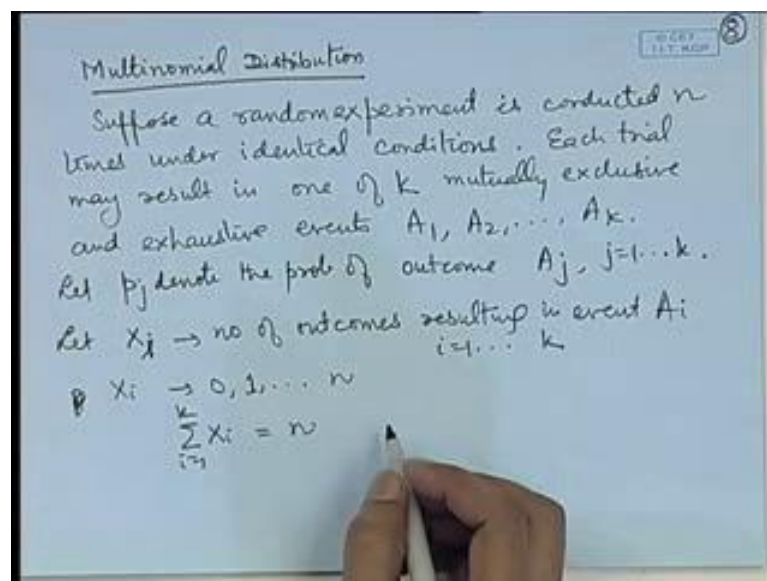 8
© CET
I.I.T. KGP
Multinomial Distribution
Suppose a random experiment is conducted n
times under identical conditions. Each trial
may result in one of k mutually exclusive
and exhaustive events A1, A2, ..., Ak.
Let pj denote the prob of outcome Aj, j=1...k.
Let Xi → no of outcomes resulting in event Ai
i=1... k
Xi → 0, 1, ... n
k
Σ Xi = n
i=1